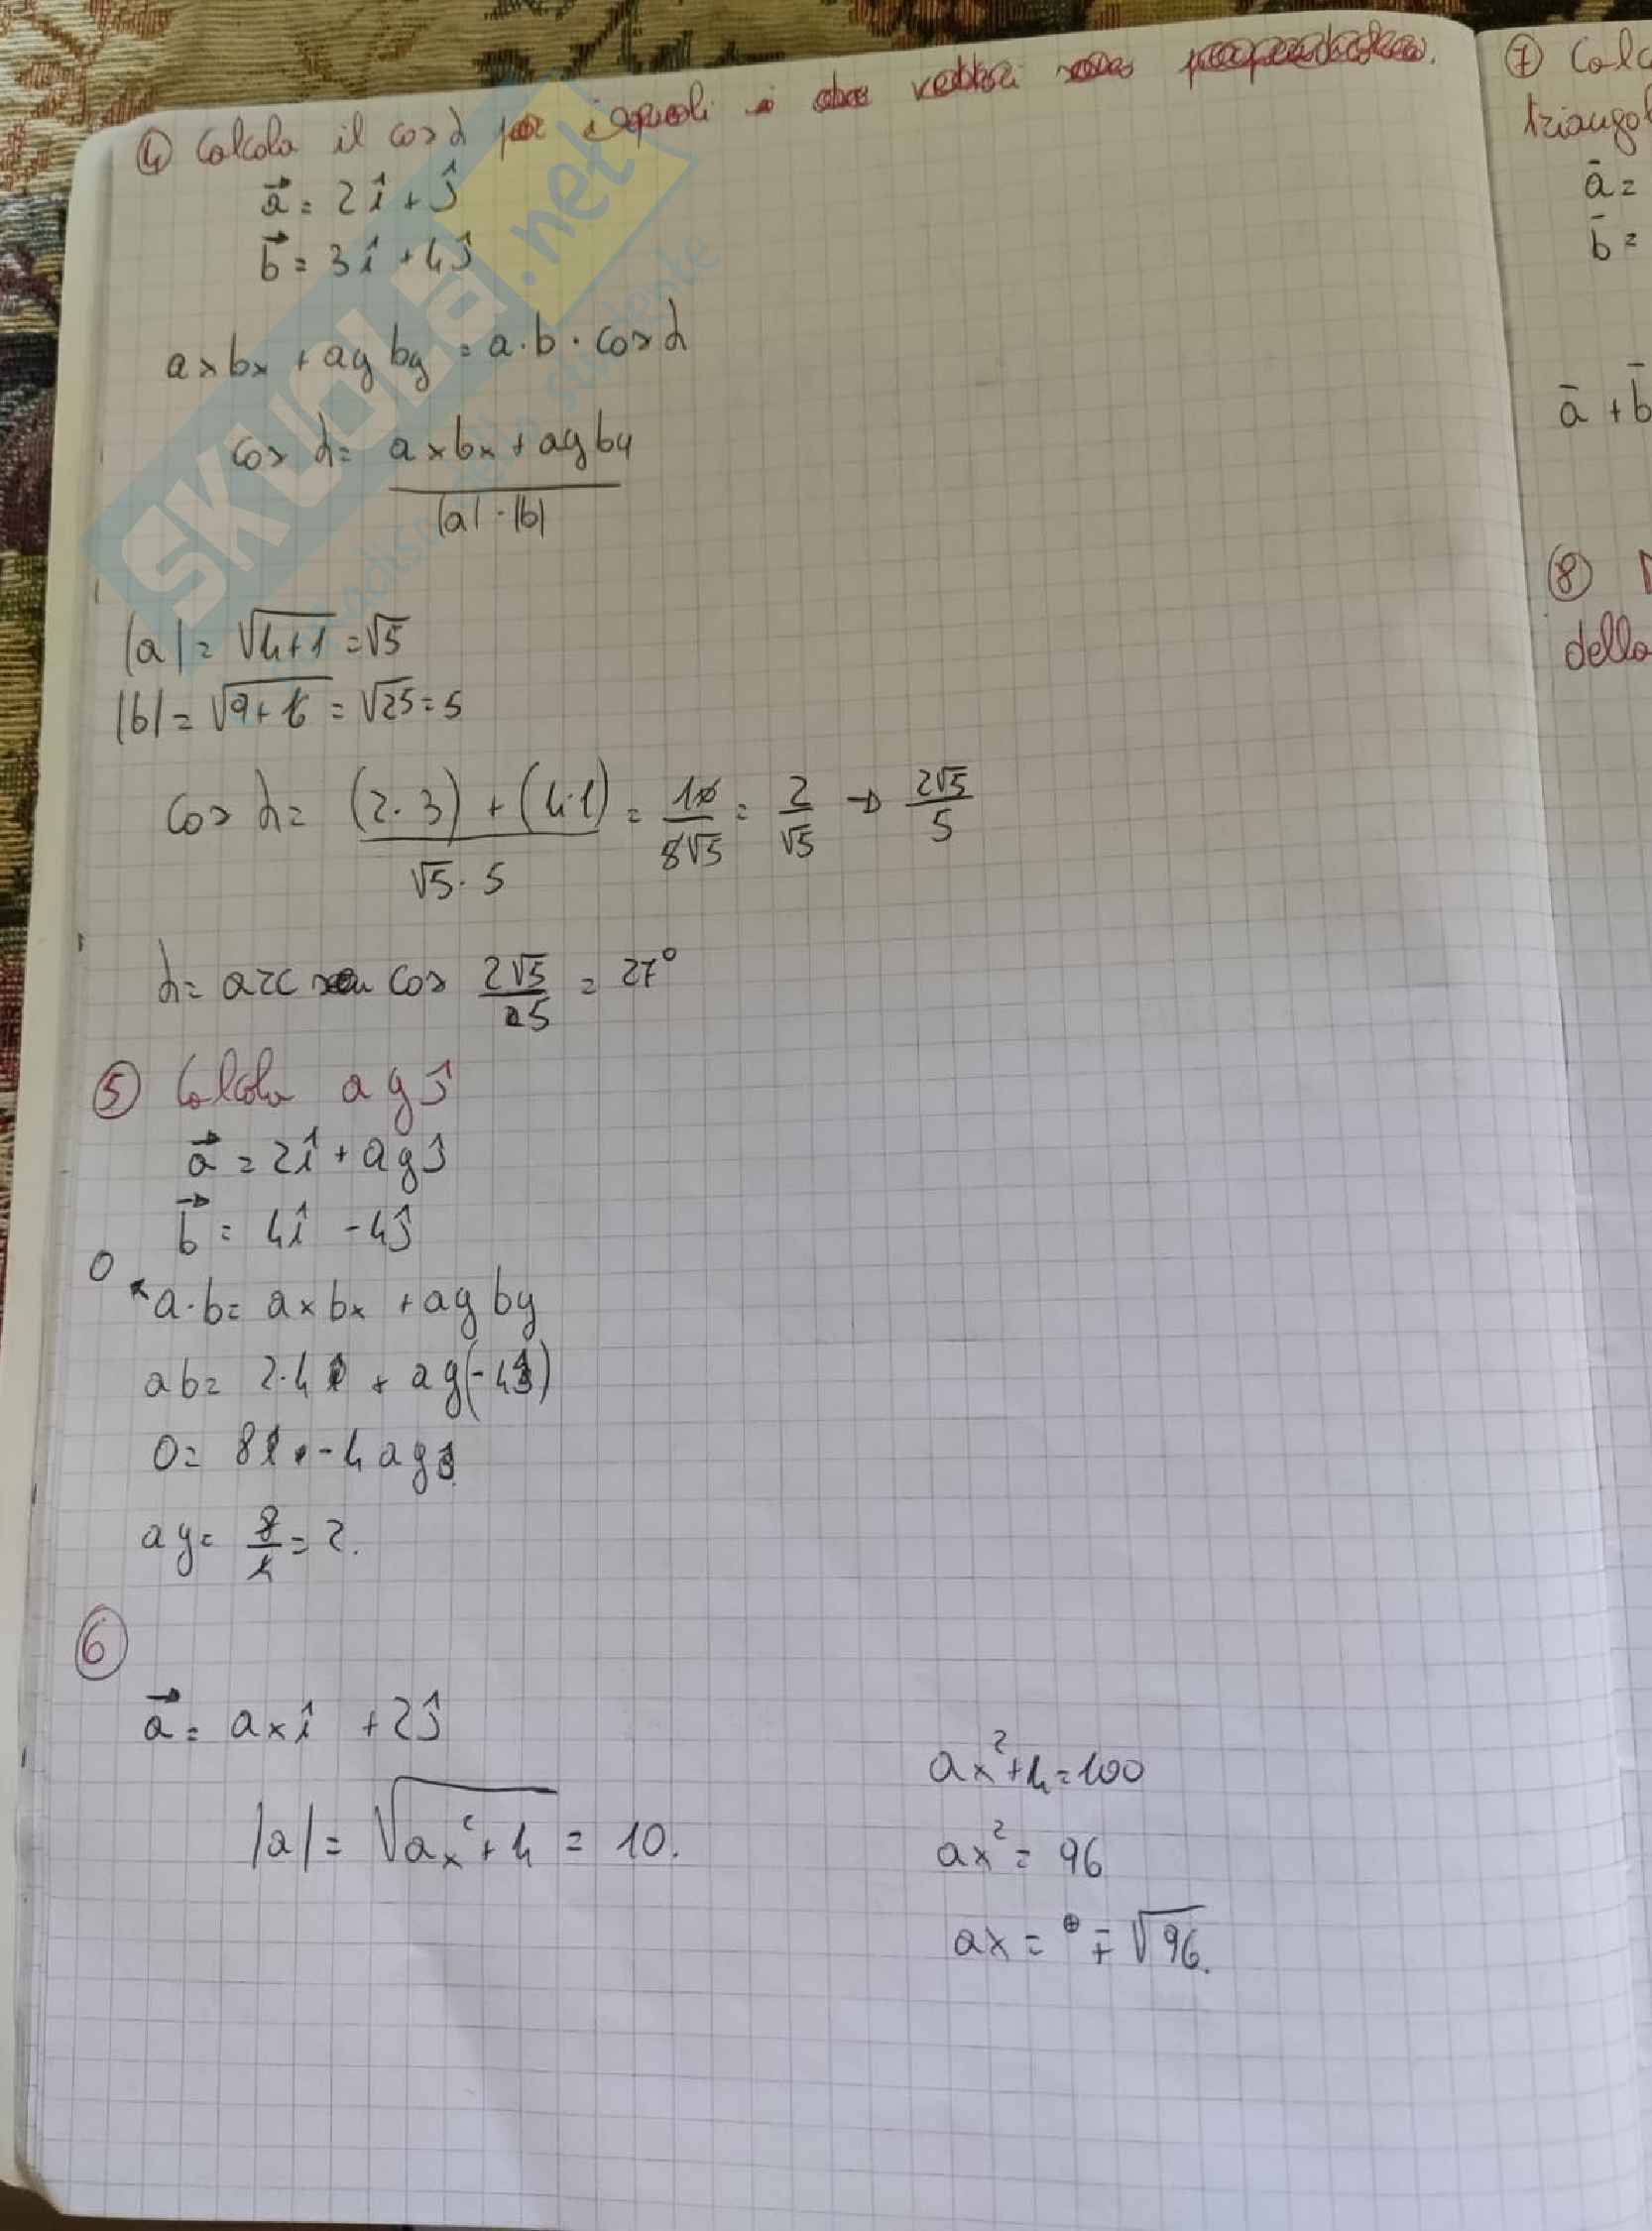 ④ Calcola il cos α per i quali i due vettori sono perpendicolari.
a⃗ = 2î + ĵ
b⃗ = 3î + 4ĵ
axbx + ayby = a·b·cos α
cos α = axbx + ayby
|a|·|b|
|a| = √4+1 = √5
|b| = √9+16 = √25 = 5
cos α = (2·3) + (4·1) / √5·5 = 10/5√5 = 2/√5 → 2√5/5
α = arc cos 2√5/5 = 27°
⑤ Calcola ayĵ
a⃗ = 2î + ayĵ
b⃗ = 4î - 4ĵ
0
a·b = axbx + ayby
ab = 2·4 + ay(-4)
0 = 8 - 4ay
ay = 8/4 = 2.
⑥
a⃗ = axî + 2ĵ
|a| = √ax²+4 = 10.
ax²+4=100
ax² = 96
ax = ⊕ ∓ √96.
⑦ Calc
triangol
ā =
b̄ =
ā + b̄
⑧
della
SKUOLA.net